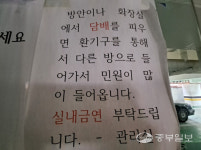 세요
방안이나 화장실
에서 담배를 피우
면 환기구를 통해
서 다른 방으로 들
어가서 민원이 많
이 들어옵니다.
실내금연 부탁드립
니다. - 관리
중부일보